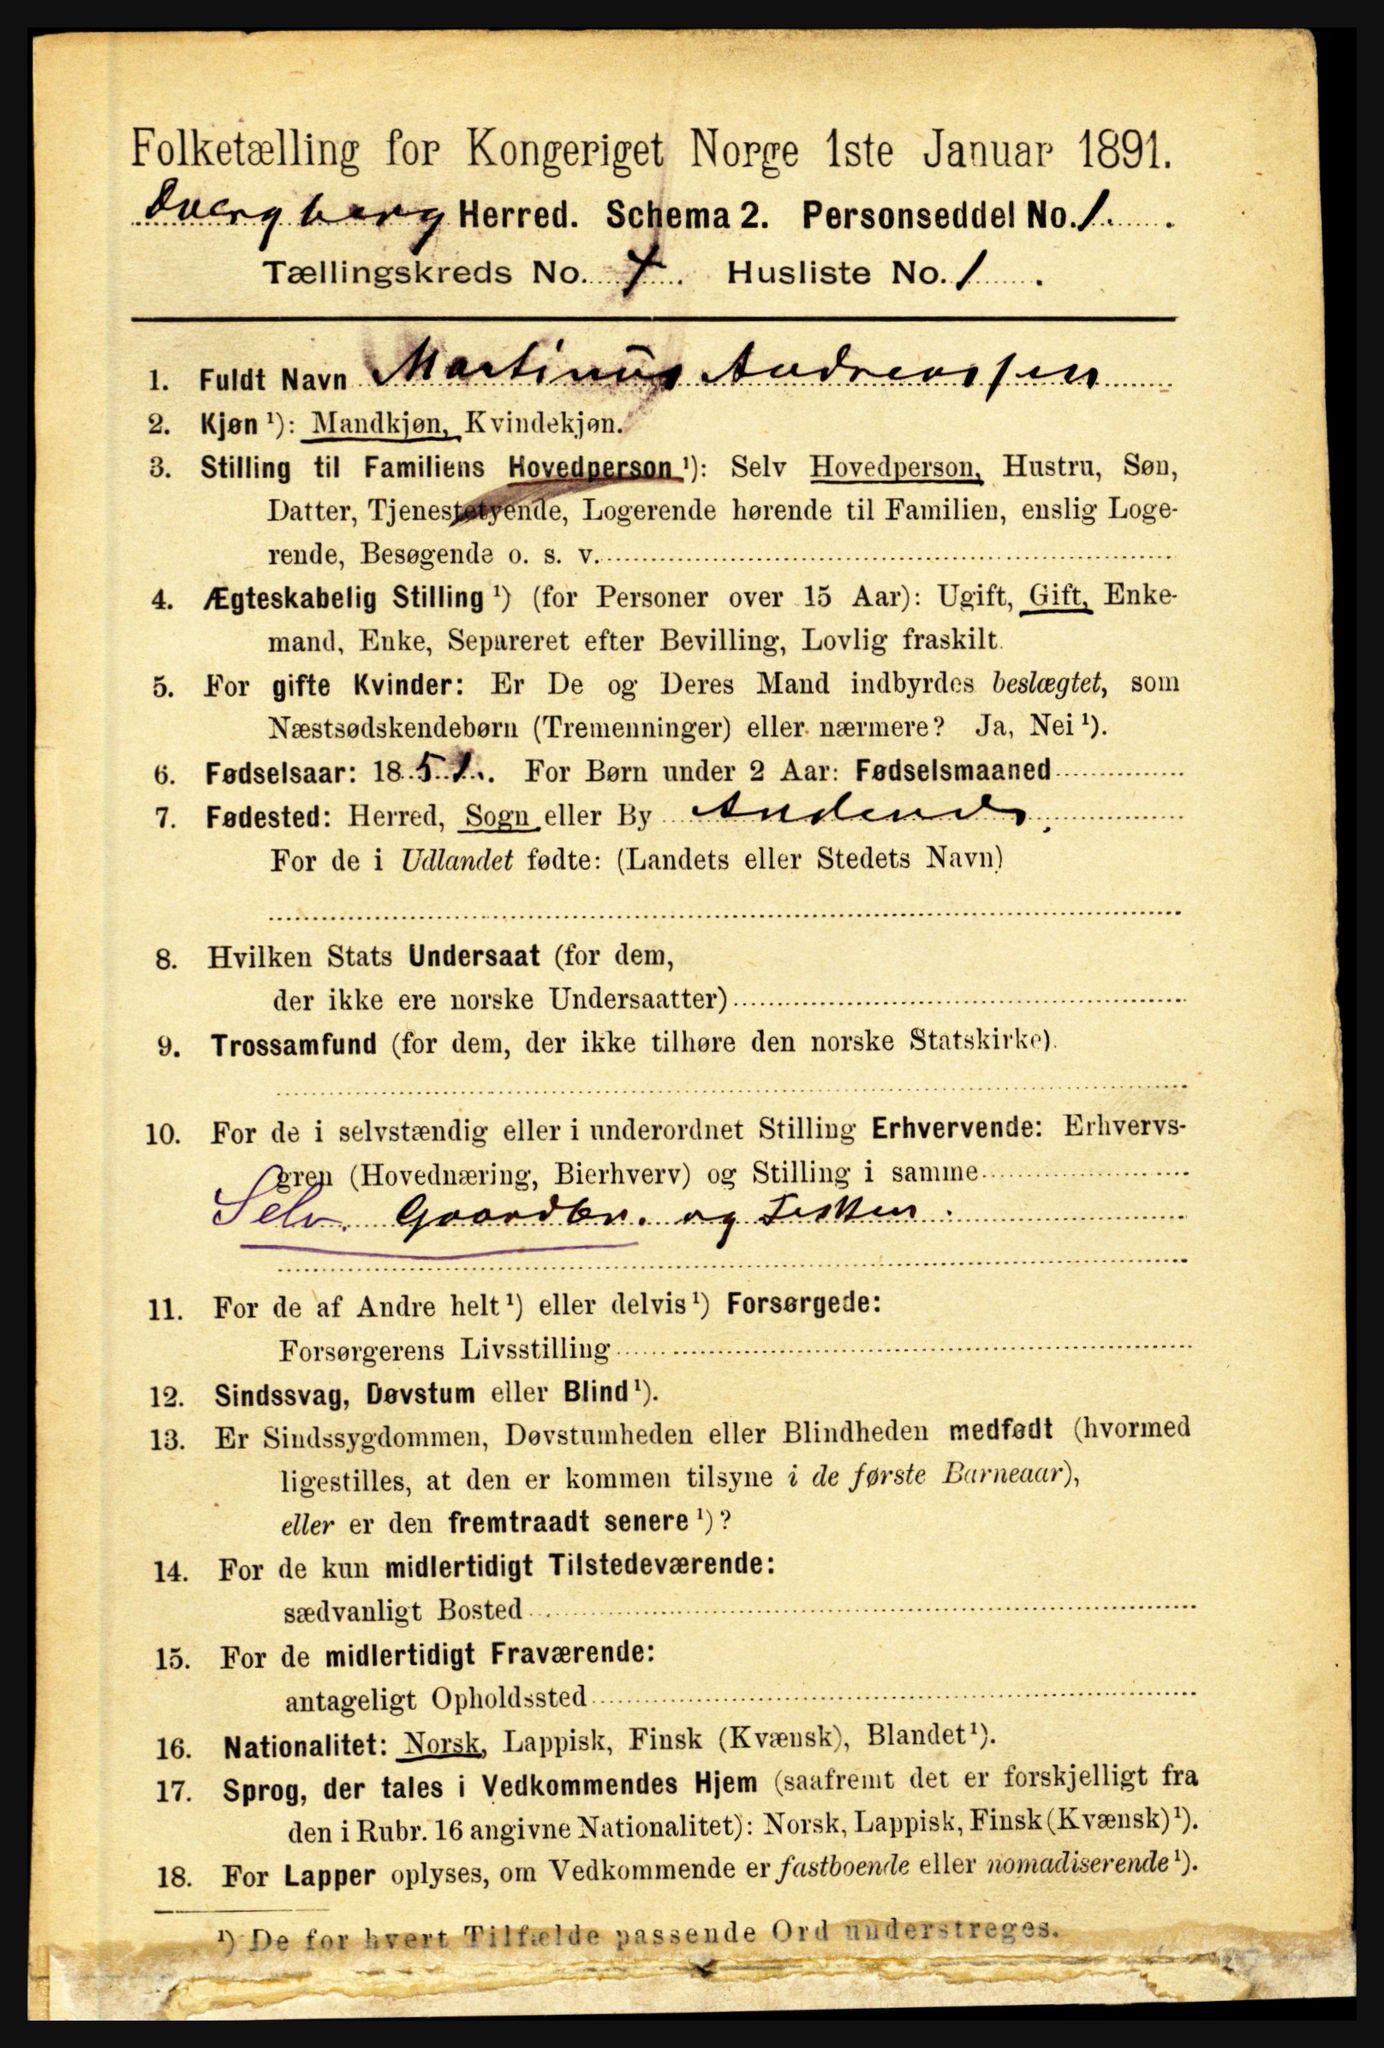 Folketælling for Kongeriget Norge 1ste Januar 1891.
Dvergberg Herred. Schema 2. Personseddel No. 1.
Tællingskreds No. 7. Husliste No. 1.
1. Fuldt Navn Martinus Andreassen
2. Kjøn ¹): Mandkjøn, Kvindekjøn.
3. Stilling til Familiens Hovedperson ¹): Selv Hovedperson, Hustru, Søn,
Datter, Tjenestetyende, Logerende hørende til Familien, enslig Loge-
rende, Besøgende o. s. v.
4. Ægteskabelig Stilling ¹) (for Personer over 15 Aar): Ugift, Gift, Enke-
mand, Enke, Separeret efter Bevilling, Lovlig fraskilt.
5. For gifte Kvinder: Er De og Deres Mand indbyrdes beslægtet, som
Næstsødskendebørn (Tremenninger) eller nærmere? Ja, Nei ¹).
6. Fødselsaar: 1851. For Børn under 2 Aar: Fødselsmaaned
7. Fødested: Herred, Sogn eller By Andenes.
For de i Udlandet fødte: (Landets eller Stedets Navn)
8. Hvilken Stats Undersaat (for dem,
der ikke ere norske Undersaatter)
9. Trossamfund (for dem, der ikke tilhøre den norske Statskirke).
10. For de i selvstændig eller i underordnet Stilling Erhvervende: Erhvervs-
gren (Hovednæring, Bierhverv) og Stilling i samme
Selv. Gaardbr. og Fisker.
11. For de af Andre helt ¹) eller delvis ¹) Forsørgede:
Forsørgerens Livsstilling
12. Sindssvag, Døvstum eller Blind ¹).
13. Er Sindssygdommen, Døvstumheden eller Blindheden medfødt (hvormed
ligestilles, at den er kommen tilsyne i de første Barneaar),
eller er den fremtraadt senere ¹)?
14. For de kun midlertidigt Tilstedeværende:
sædvanligt Bosted
15. For de midlertidigt Fraværende:
antageligt Opholdssted
16. Nationalitet: Norsk, Lappisk, Finsk (Kvænsk), Blandet ¹).
17. Sprog, der tales i Vedkommendes Hjem (saafremt det er forskjelligt fra
den i Rubr. 16 angivne Nationalitet): Norsk, Lappisk, Finsk (Kvænsk) ¹).
18. For Lapper oplyses, om Vedkommende er fastboende eller nomadiserende ¹).
¹) De for hvert Tilfælde passende Ord understreges.